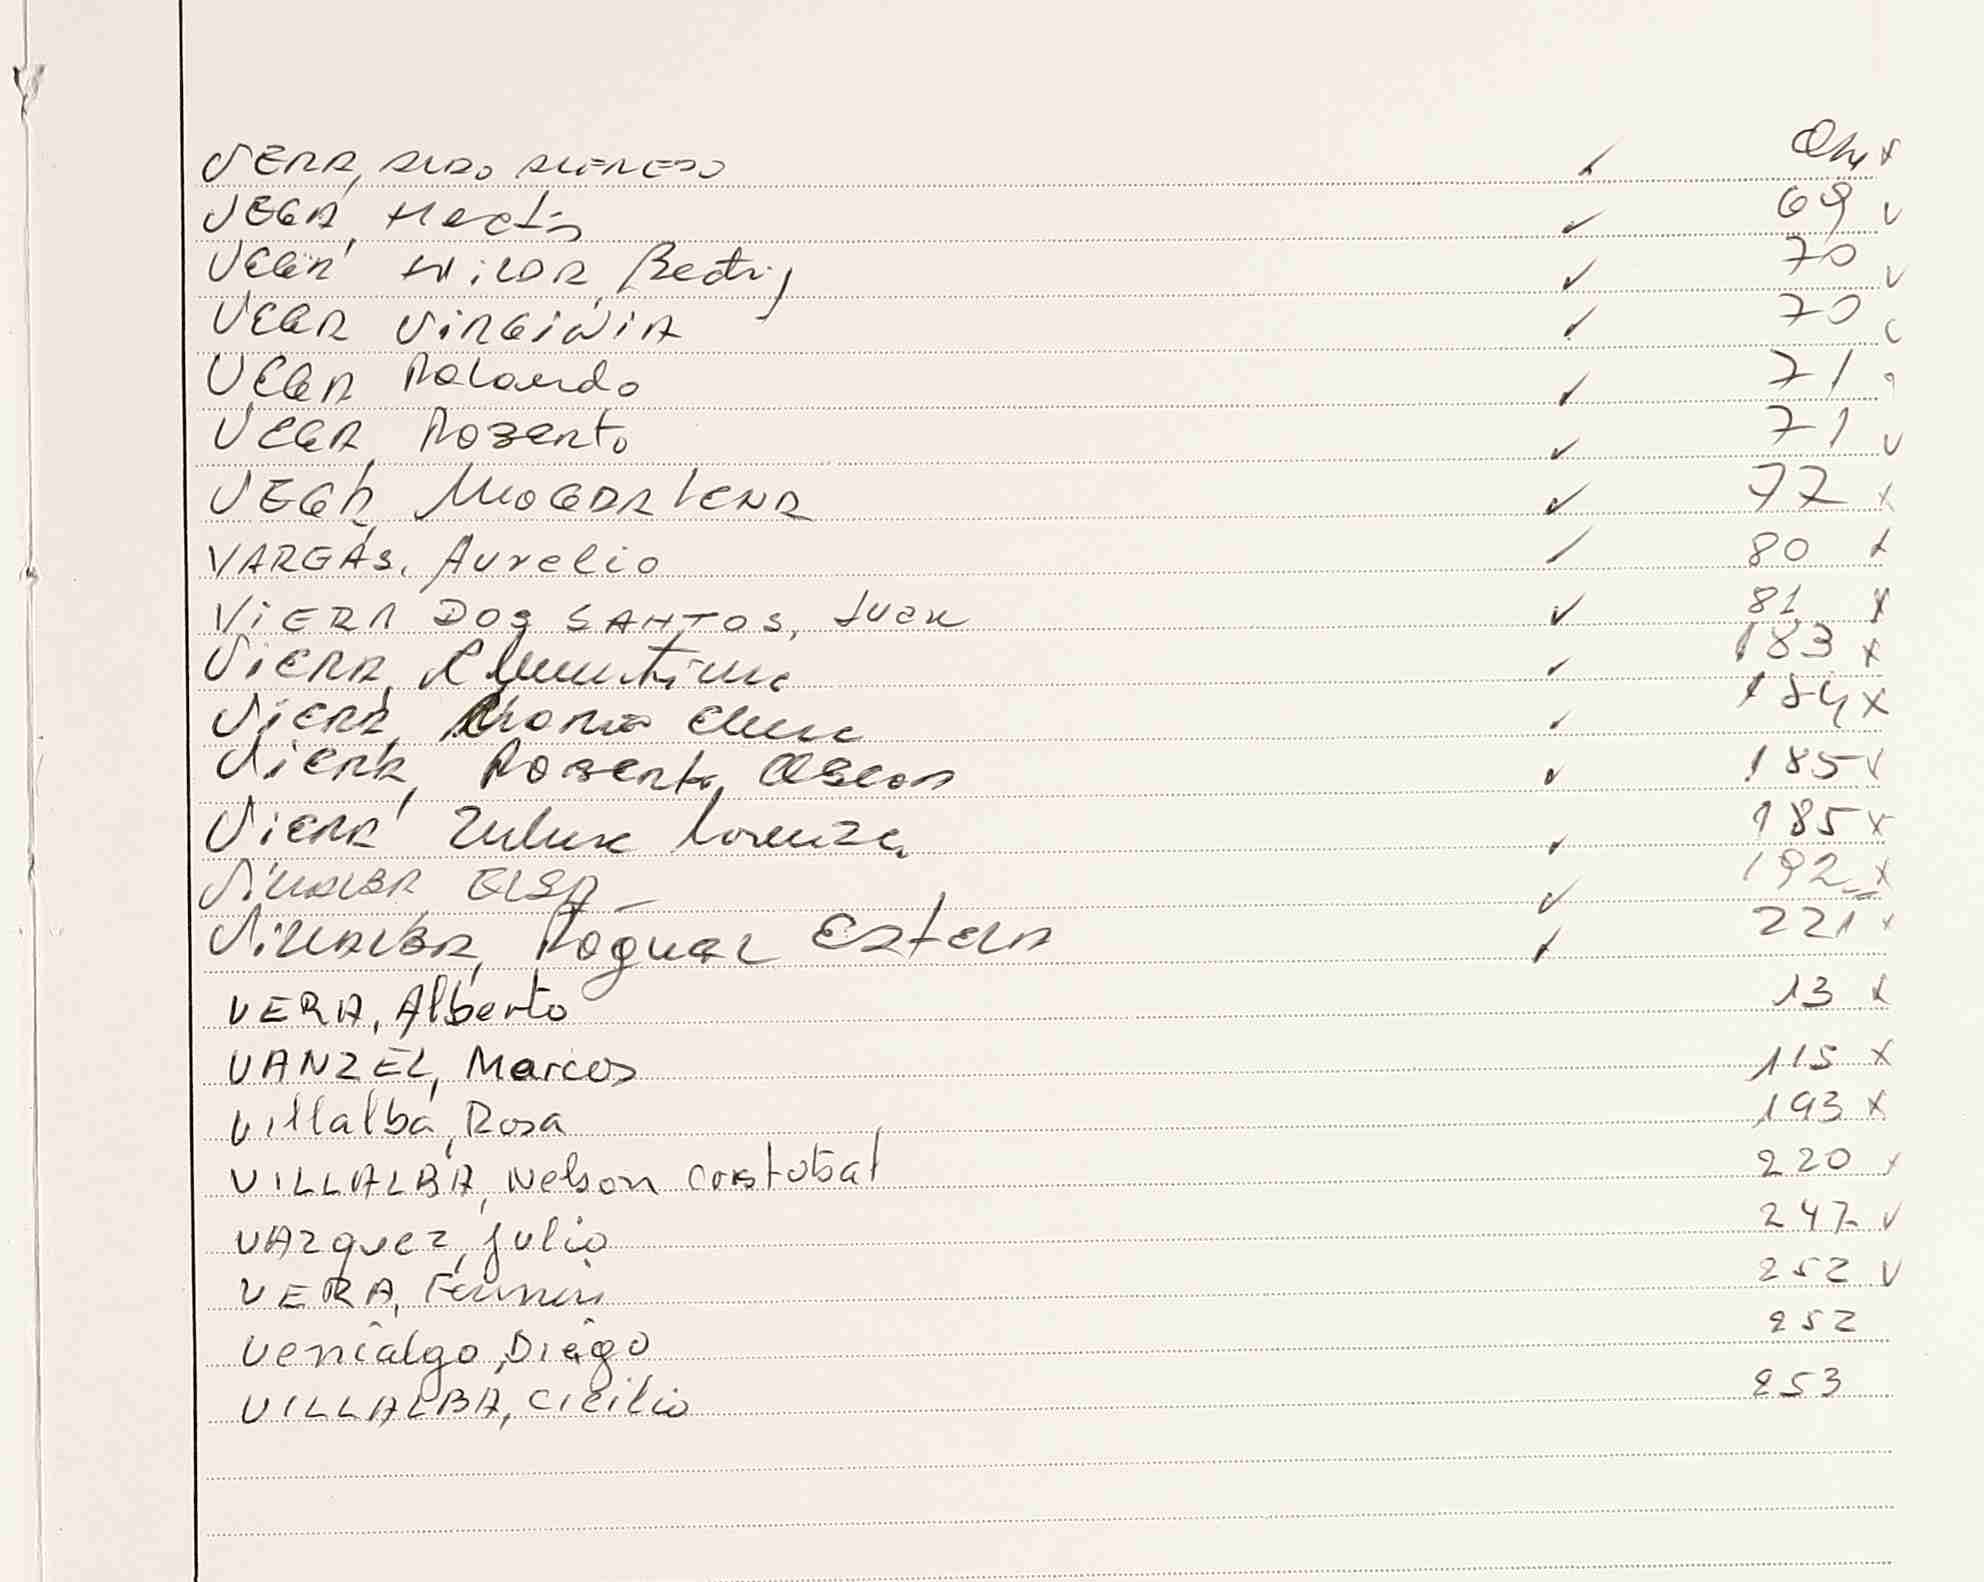 VERA, ALDO ALFREDO ✓ x
VEGA, Hectis ✓ 69 v
VEGA HILDA, Beatriz ✓ 70 v
VEGA VIRGINIA ✓ 70
VEGA Rolando ✓ 71
VEGA ROBERTO ✓ 71 v
VEGA, MAGDALENA ✓ 77 x
VARGAS, Aurelio ✓ 80 x
VIERA DOS SANTOS, Juan ✓ 81 x
VIERA, Clementina ✓ 183 x
VIERA, Maria Elena ✓ 184 x
VIERA, ROBERTO OSCAR ✓ 185 v
VIERA Zulma Lorenza ✓ 185 x
VILLALBA ELSA ✓ 192 x
VILLALBA, Raquel Estela ✓ 221 x
VERA, Alberto 13 x
VANZEL, Marcos 115 x
Villalba, Rosa 193 x
VILLALBA, Nelson Cristobal 220 x
VAzquez, Julio 247 v
VERA, Fermin 252 v
Venialgo, Diego 252
VILLALBA, Cicilio 253